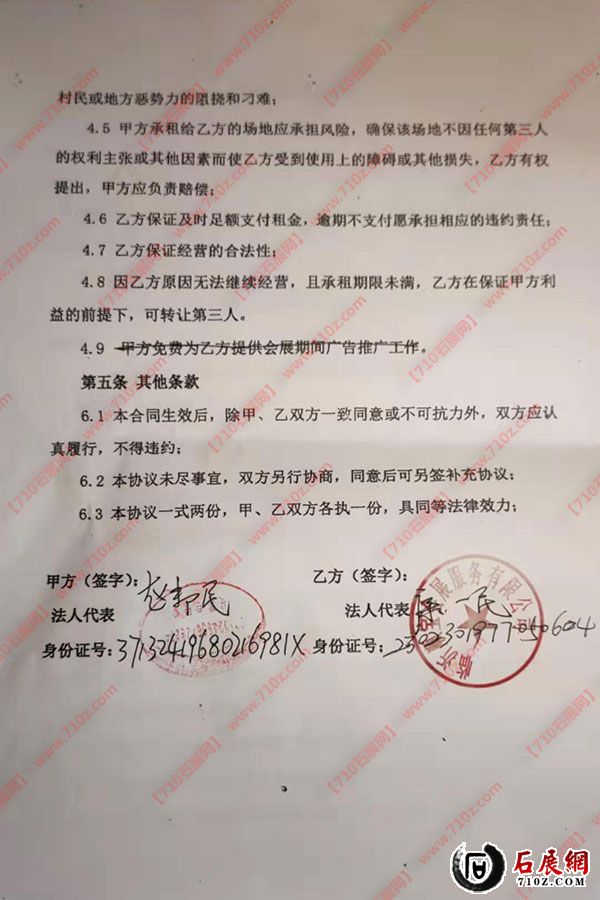 村民或地方恶势力的阻挠和刁难；
4.5 甲方承租给乙方的场地应承担风险，确保该场地不因任何第三人
的权利主张或其他因素而使乙方受到使用上的障碍或其他损失，乙方有权
提出，甲方应负责赔偿；
4.6 乙方保证及时足额支付租金，逾期不支付愿承担相应的违约责任；
4.7 乙方保证经营的合法性；
4.8 因乙方原因无法继续经营，且承租期限未满，乙方在保证甲方利
益的前提下，可转让第三人。
4.9 甲方免费为乙方提供会展期间广告推广工作。
第五条 其他条款
6.1 本合同生效后，除甲、乙双方一致同意或不可抗力外，双方应认
真履行，不得违约；
6.2 本协议未尽事宜，双方另行协商，同意后可另签补充协议；
6.3 本协议一式两份，甲、乙双方各执一份，具同等法律效力；
甲方（签字）： 乙方（签字）：
法人代表 法人代表
身份证号：37132419680216981X 身份证号：
临沂 展服务有限公司
【710石展网】 www.710z.com
石展網
710Z.COM